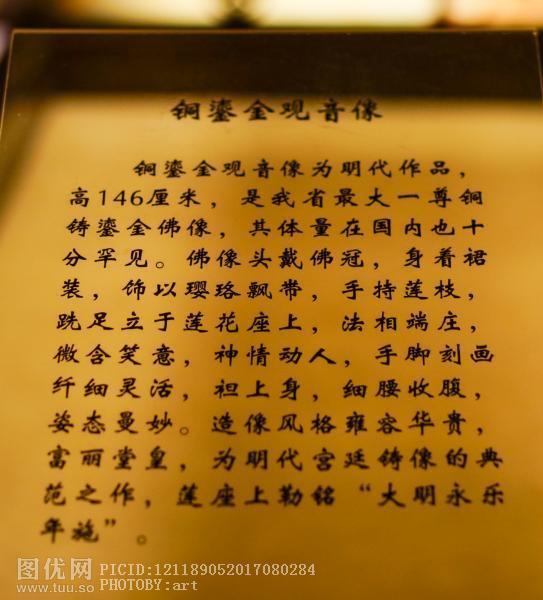 铜鎏金观音像
铜鎏金观音像为明代作品，
高146厘米，是我省最大一尊铜
铸鎏金佛像，其体量在国内也十
分罕见。佛像头戴佛冠，身着裙
装，饰以璎珞飘带，手持莲枝，
跣足立于莲花座上，法相端庄，
微含笑意，神情动人，手脚刻画
纤细灵活，袒上身，细腰收腹，
姿态曼妙。造像风格雍容华贵，
富丽堂皇，为明代宫廷铸像的典
范之作，莲座上勒铭“大明永乐
年施”。
图优网
www.tuu.so
PICID:121189052017080284
PHOTOBY:art